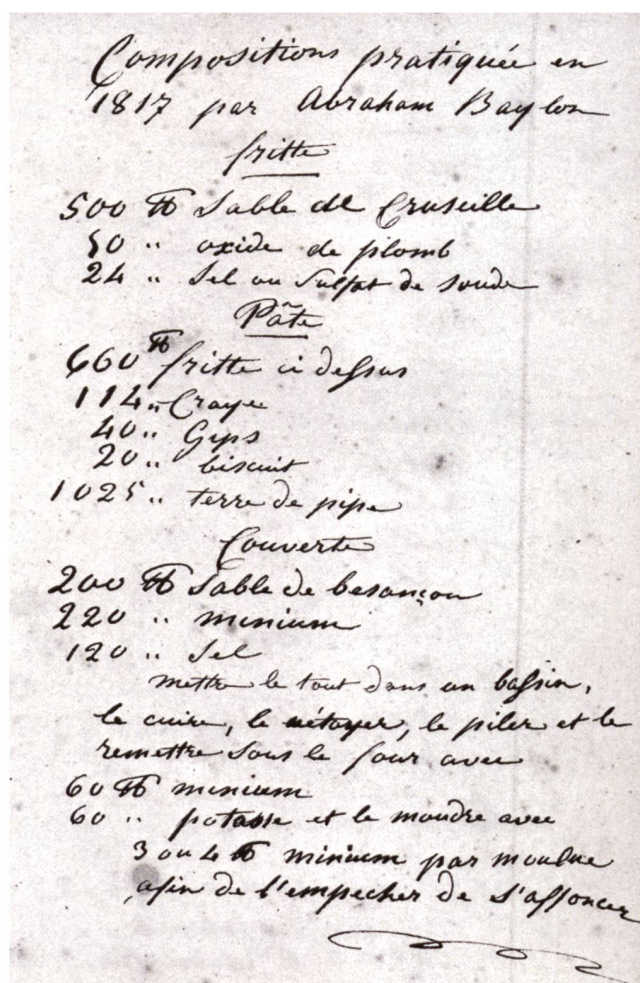 Compositions pratiquée en
1817 par Abraham Baylon
fritte
500 ℔ Sable de Cruseille
50 " oxide de plomb
24 " Sel ou Sulfat de soude
Pâte
660 ℔ fritte ci dessus
114 " Craye
40 " Gips
20 " biscuit
1025 " terre de pipe
Couverte
200 ℔ Sable de besançon
220 " minium
120 " Sel
mettre le tout dans un bassin,
le cuire, le nétoyer, le piler et le
remettre sous le four avec
60 ℔ minium
60 " potasse et le moudre avec
3 ou 4 ℔ minium par moulue
afin de l'empecher de s'affoncer